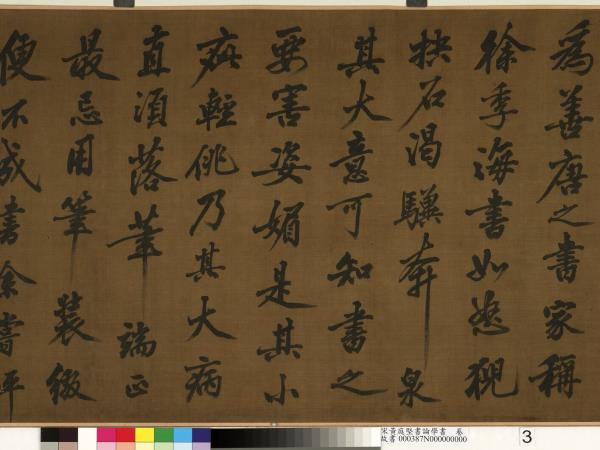 為善唐之書家稱
徐季海書如怒猊
抉石渴驥奔泉
其大意可知書之
要害姿媚是其小
疵輕佻乃其大病
直須落筆端正
最忌用筆裝綴
便不成書余嘗評
宋黃庭堅書論學書 卷
故書 000387N000000000
3